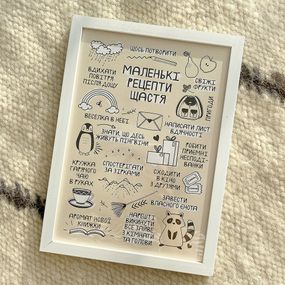 ЩОСЬ ПОТВОРИТИ
МАЛЕНЬКІ
РЕЦЕПТИ
ЩАСТЯ
ВДИХАТИ
ПОВІТРЯ
ПІСЛЯ ДОЩУ
СВІЖІ
ФРУКТИ
ВЕСЕЛКА В НЕБІ
ПРИГОДИ
НАПИСАТИ ЛИСТ
ВДЯЧНОСТІ
ЗНАТИ, ЩО ДЕСЬ
ЖИВУТЬ ПІНГВІНИ
РОБИТИ
ПРИЄМНІ
НЕСПОДІ-
ВАНКИ
КРУЖКА
ГАРЯЧОГО
ЧАЮ
В РУКАХ
СПОСТЕРІГАТИ
ЗА ЗІРКАМИ
СХОДИТИ
В КІНО
З ДРУЗЯМИ
ЗАВЕСТИ
ВЛАСНОГО ЄНОТА
АРОМАТ НОВОЇ
КНИЖКИ
НАРЕШТІ
ВИКИНУТИ
ВСЕ ЗАЙВЕ
З КІМНАТИ
ТА ГОЛОВИ